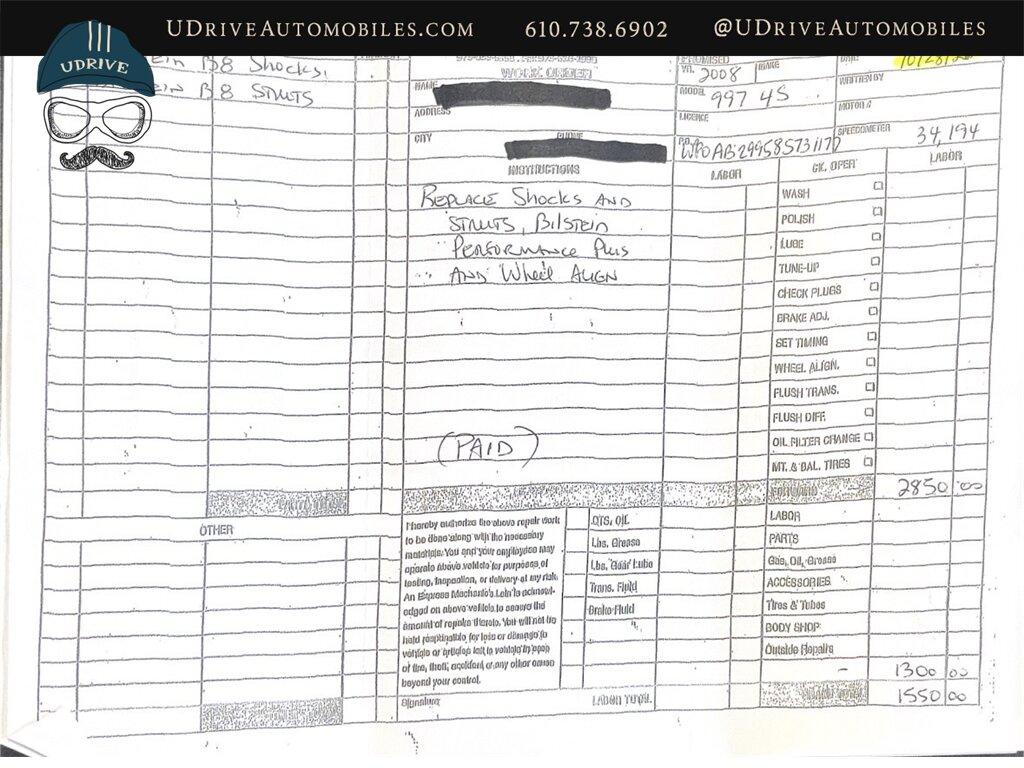 UDRIVEAUTOMOBILES.COM 610.738.6902 @UDRIVEAUTOMOBILES
UDRIVE
B8 Shocks.
B8 STRUTS
WORK ORDER
PROMISED
YR. 2008 MAKE
DATE
NAME
MODEL 997 4S
WRITTEN BY
ADDRESS
LICENCE
MOTOR #
CITY PHONE
SPEEDOMETER 34,194
INSTRUCTIONS
LABOR
CK. OPER.
LABOR
REPLACE Shocks AND
STRUTS, Bilstein
PERFORMANCE Plus
AND Wheel ALIGN
(PAID)
WASH
POLISH
LUBE
TUNE-UP
CHECK PLUGS
BRAKE ADJ.
SET TIMING
WHEEL ALIGN.
FLUSH TRANS.
FLUSH DIFF.
OIL FILTER CHANGE
MT. & BAL. TIRES
FORWARD 2850 00
OTHER
I hereby authorize the above repair work
to be done along with the necessary
materials. You and your employees may
operate above vehicle for purposes of
testing, inspection, or delivery at my risk.
An Express Mechanic's Lein is acknowl-
edged on above vehicle to secure the
amount of repairs thereto. You will not be
held responsible for loss or damage to
vehicle or articles left in vehicle in case
of fire, theft, accident or any other cause
beyond your control.
Signature
QTS. OIL
Lbs. Grease
Lbs. Gear Lube
Trans. Fluid
Brake Fluid
LABOR TOTAL
LABOR
PARTS
Gas, Oil, Grease
ACCESSORIES
Tires & Tubes
BODY SHOP
Outside Repairs
- 1300 00
1550 00